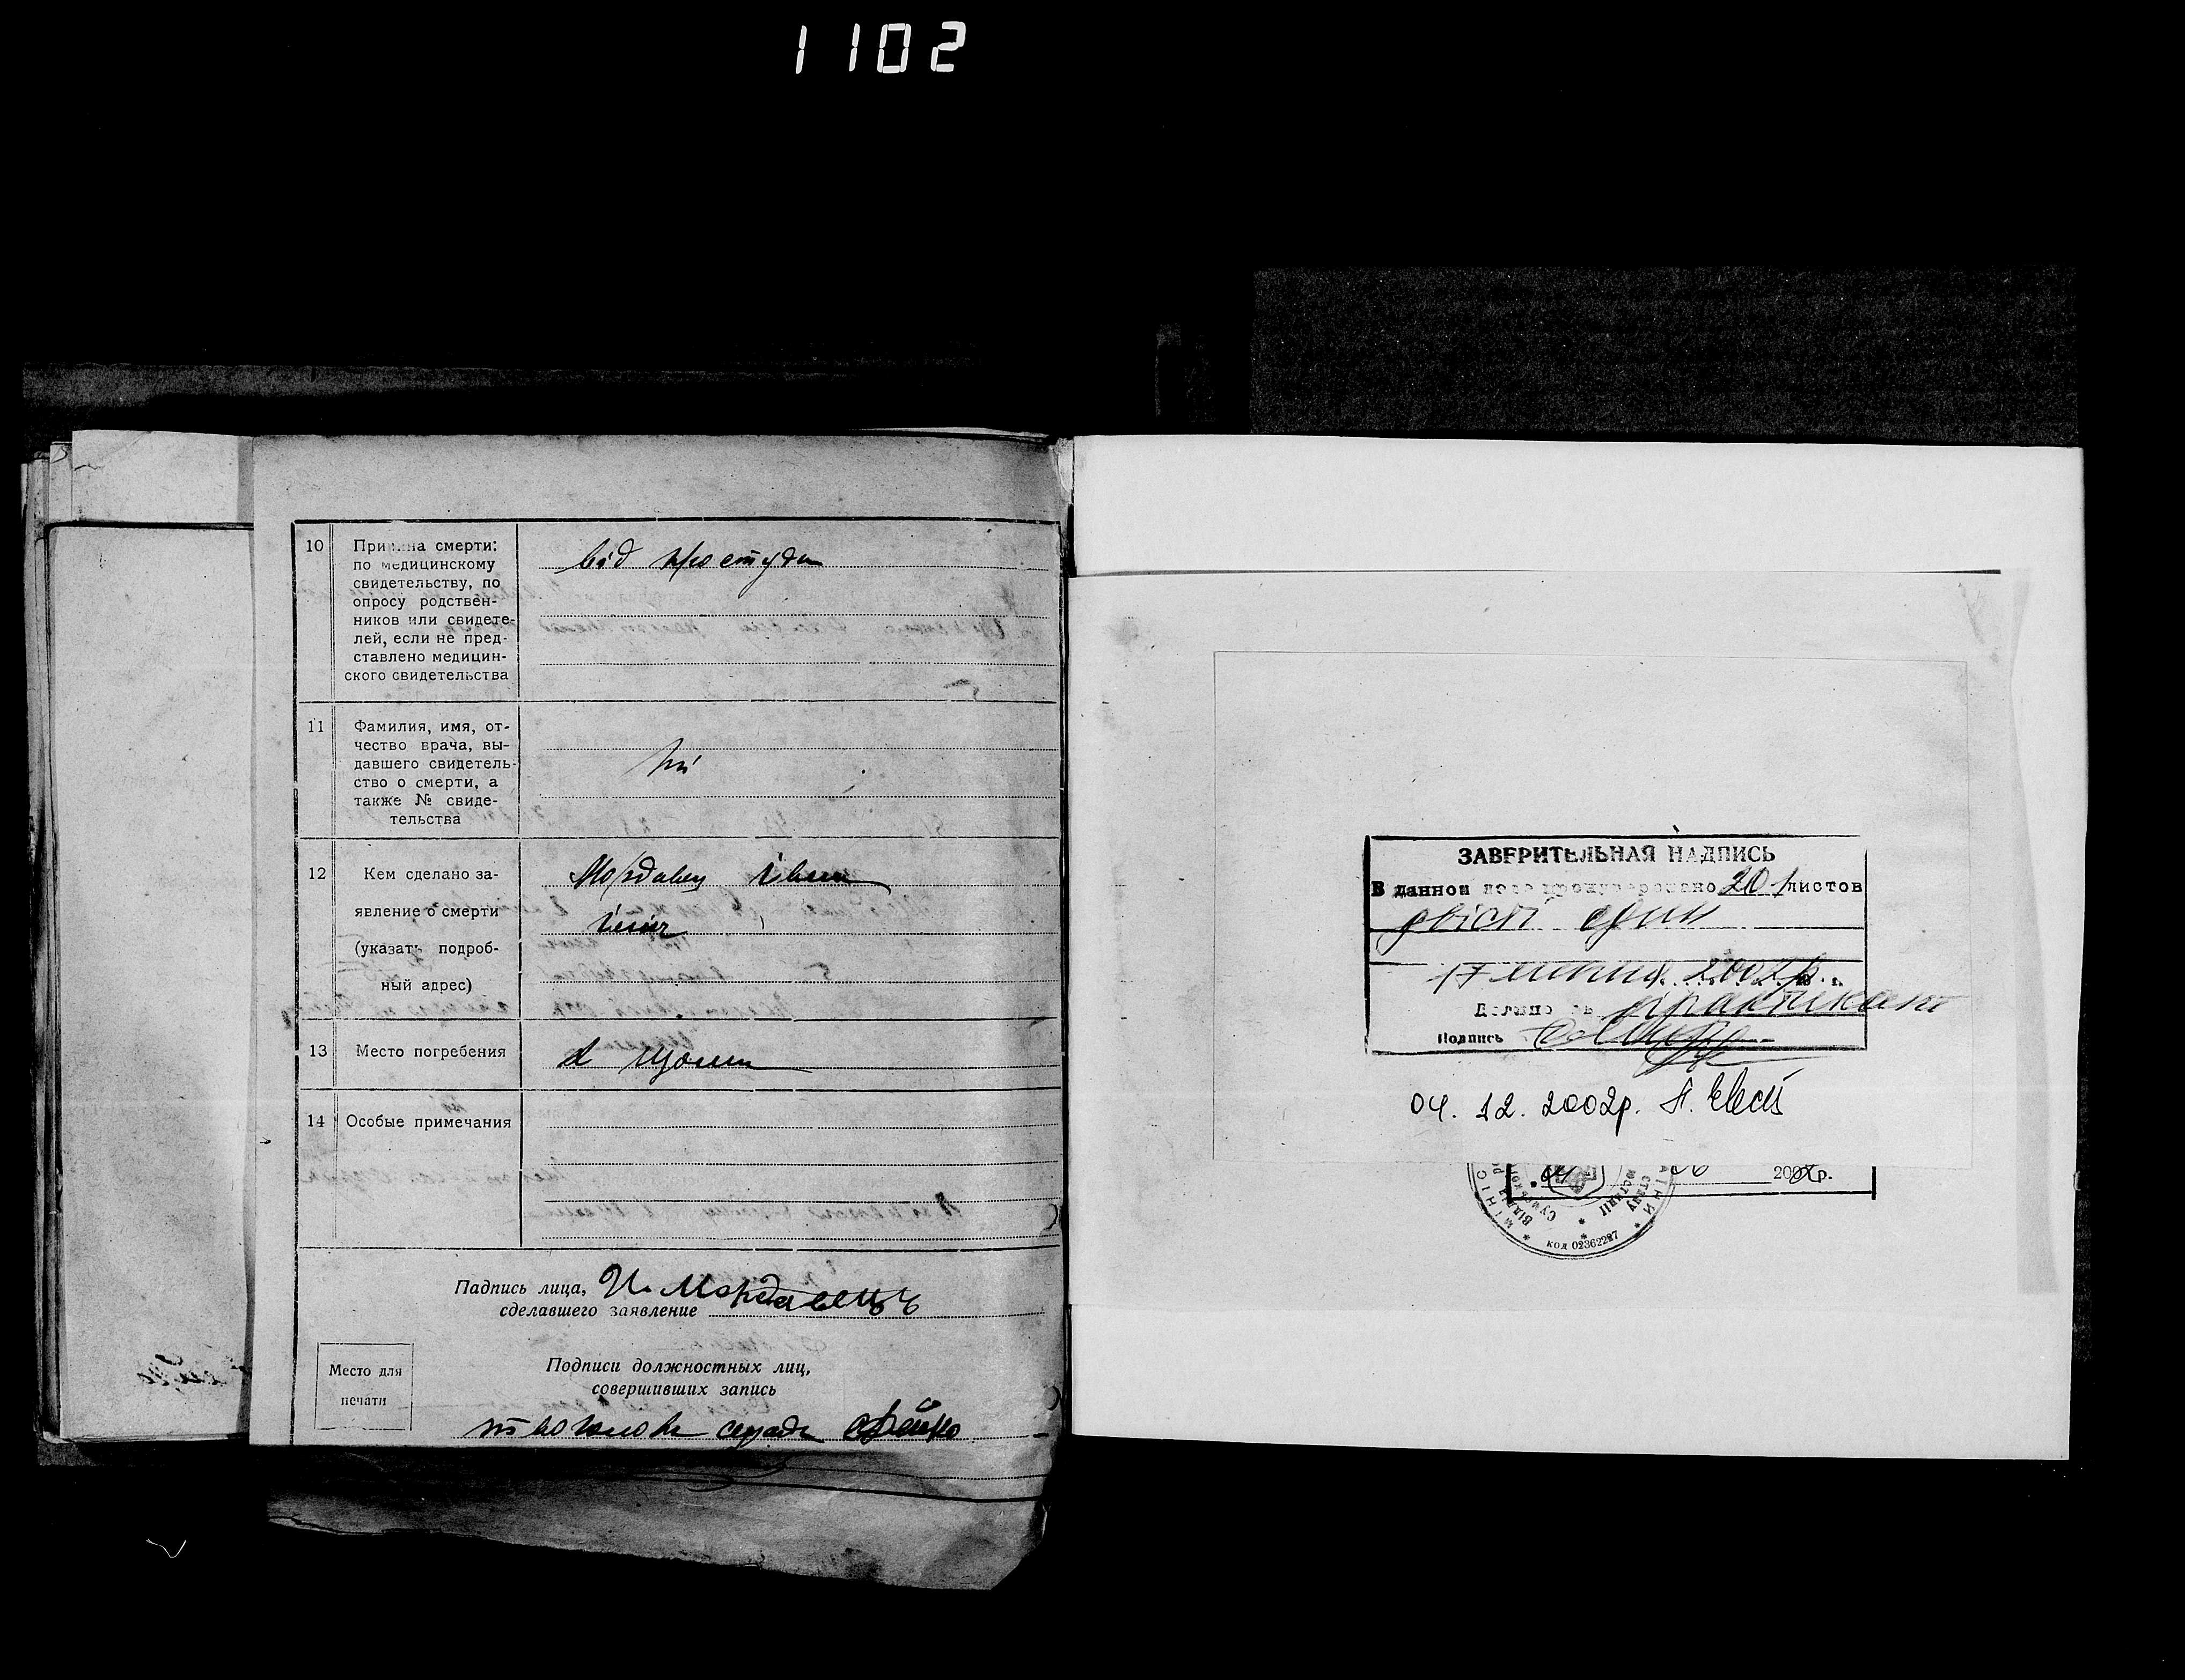 1102
10
Причина смерти:
по медицинскому
свидетельству, по
опросу родствен-
ников или свидете-
лей, если не пред-
ставлено медицин-
ского свидетельства
від простуди
11
Фамилия, имя, от-
чество врача, вы-
давшего свидетель-
ство о смерти, а
также № свиде-
тельства
ні
12
Кем сделано за-
явление о смерти
(указать подроб-
ный адрес)
Мордавец Іван
13
Место погребения
14
Особые примечания
Падпись лица,
сделавшего заявление
И. Мордавець
Место для
печати
Подписи должностных лиц,
совершивших запись
ЗАВЕРИТЕЛЬНАЯ НАДПИСЬ
В данной 201 листов
двісті один
17 липня 2002р.
практикант
Подпись
04. 12. 2002р.
2002р.
код 02362227